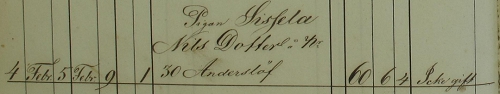 Pigan Sissela
Nils Dotter
4 Febr 5 Febr 9 1 30 Anderslöf 60 6 4 Icke gift